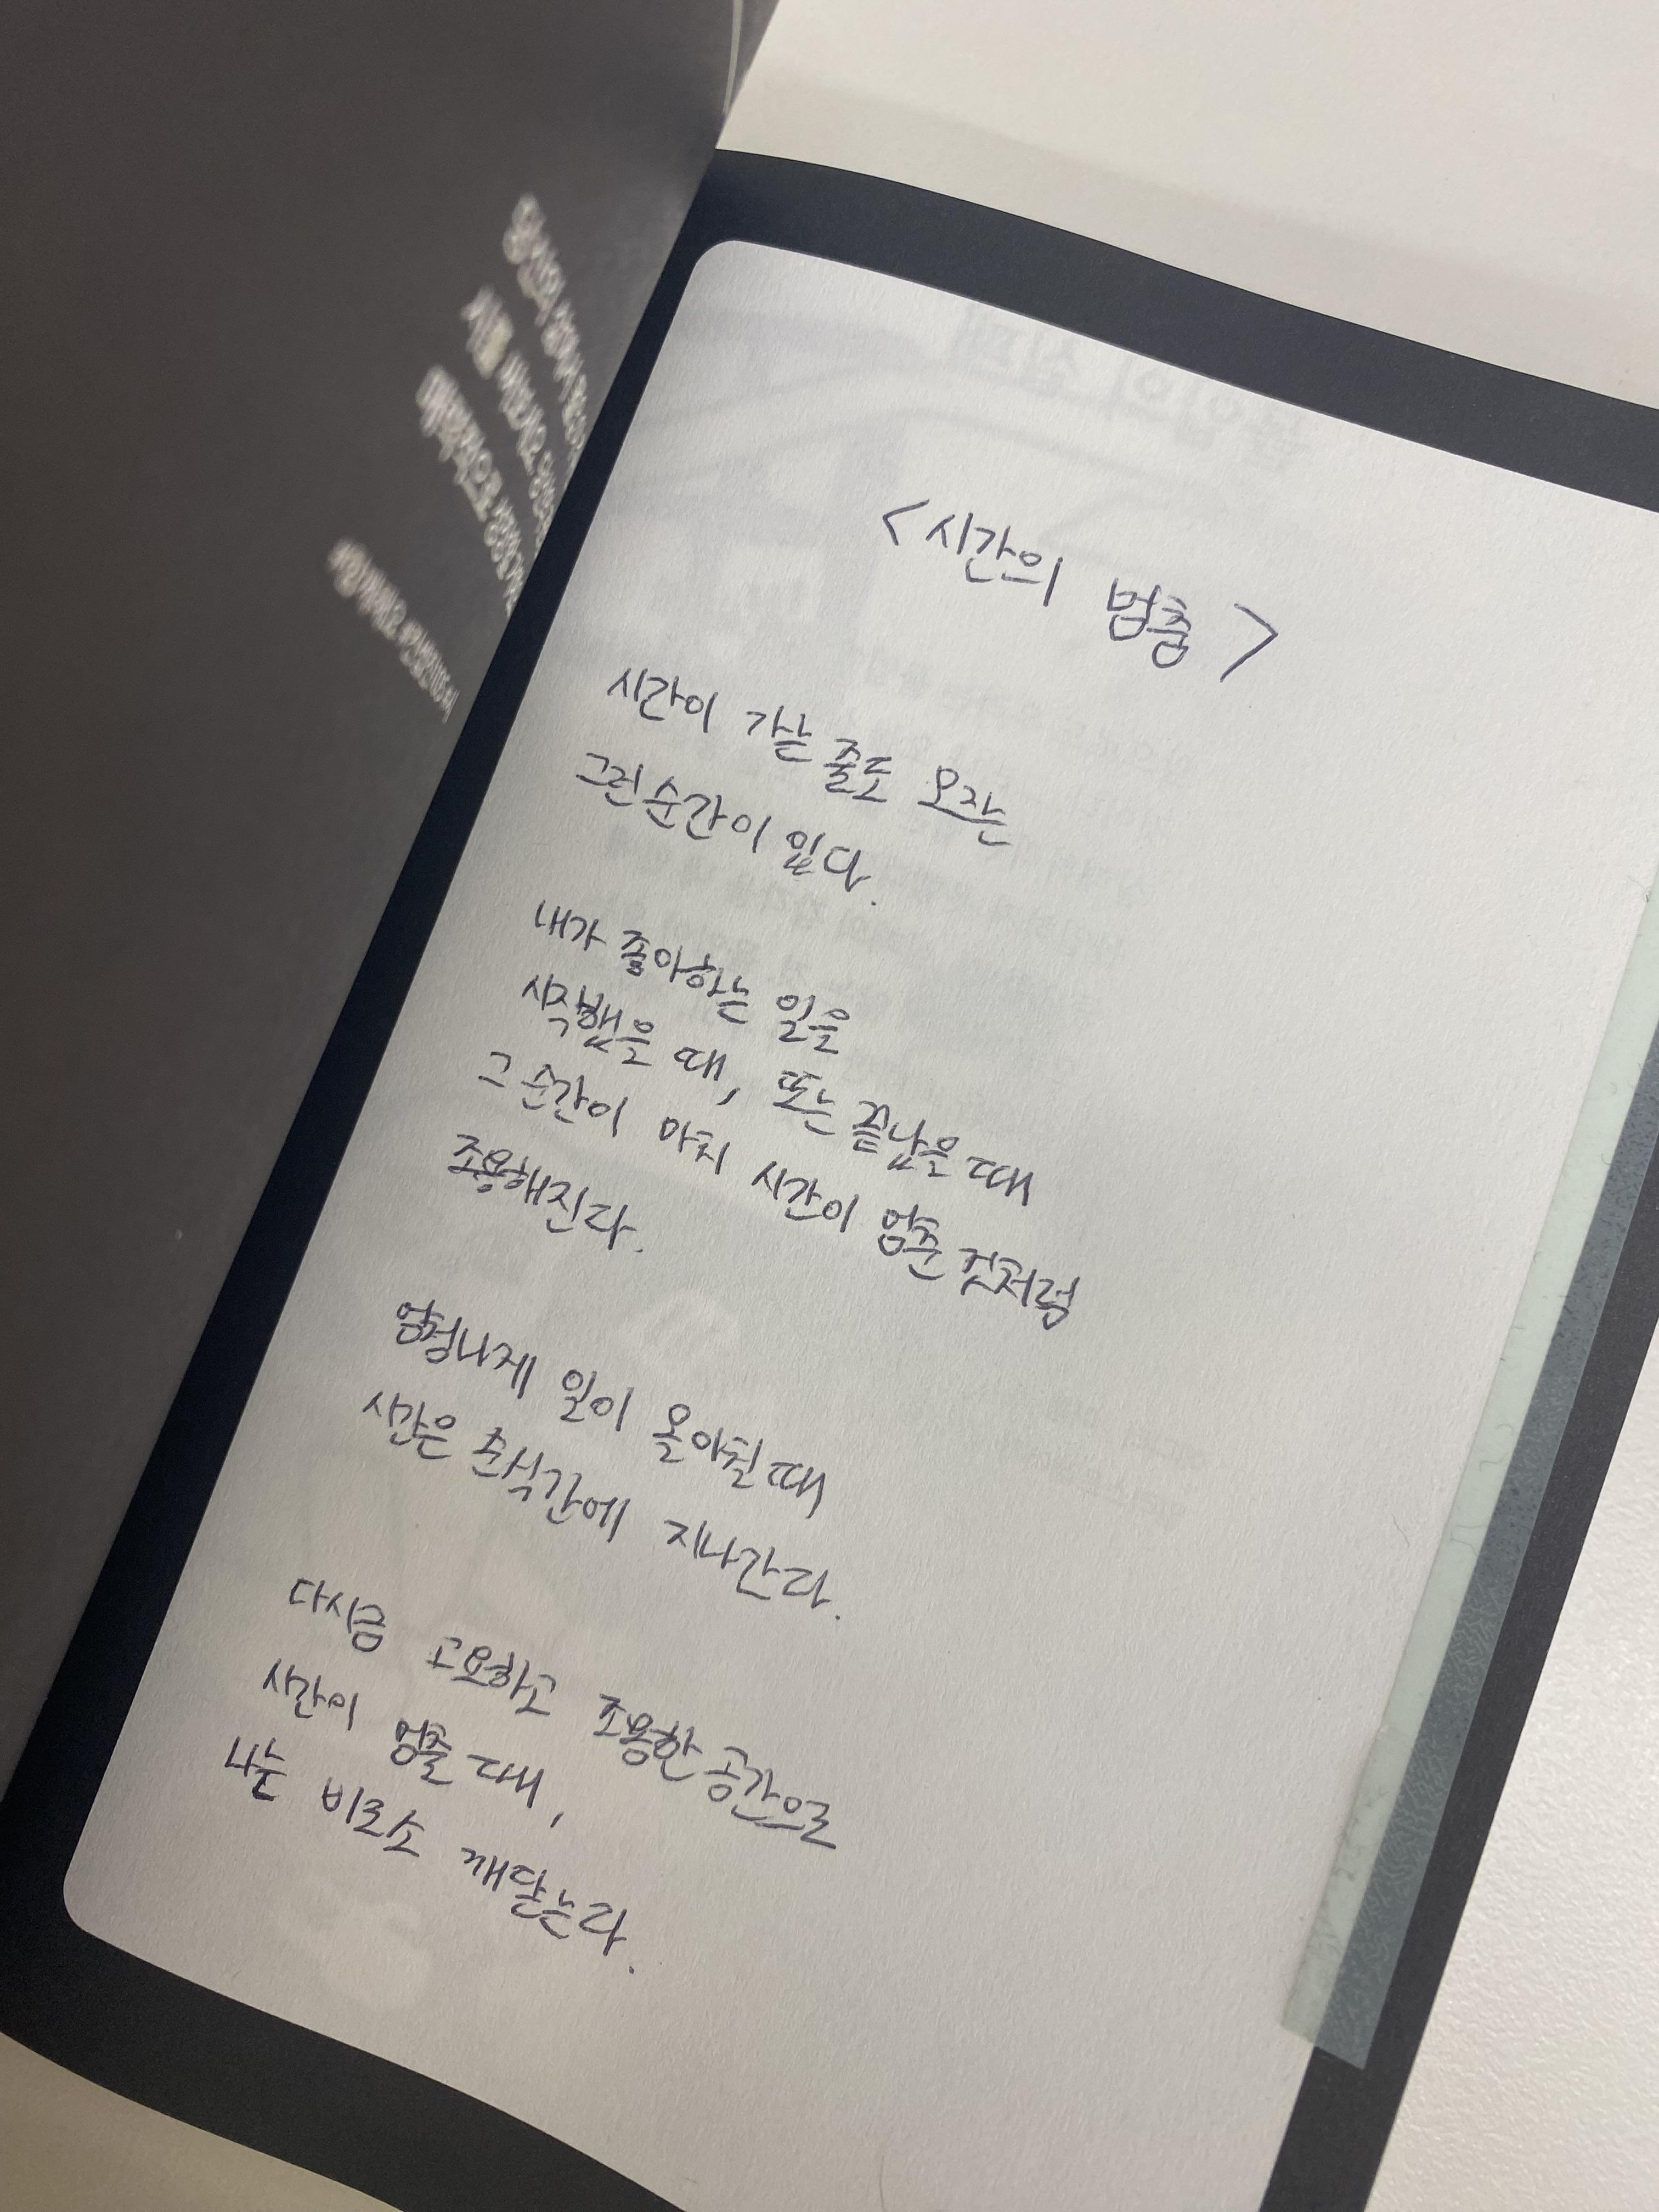 <시간의 멈춤>
시간이 가는 줄도 모르는
그런 순간이 있다.
내가 좋아하는 일을
시작했을 때, 또는 끝났을 때
그 순간이 마치 시간이 멈춘 것처럼
조용해진다.
엄청나게 일이 몰아칠 때
시간은 순식간에 지나간다.
다시금 고요하고 조용한 공간으로
시간이 멈출 때,
나는 비로소 깨닫는다.